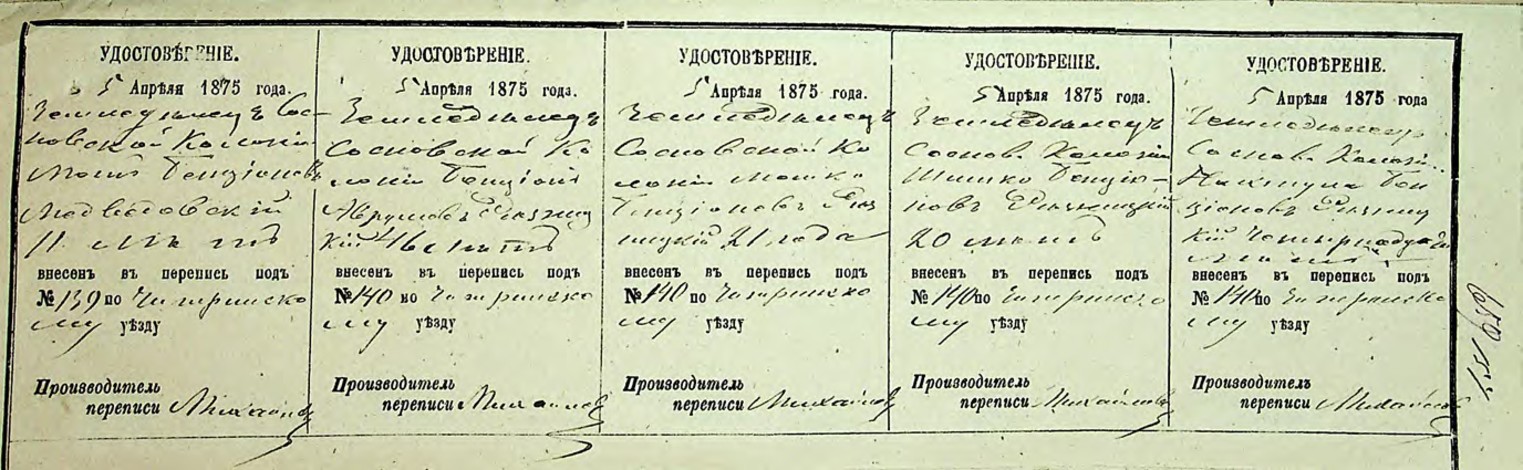 УДОСТОВѢРЕНІЕ.
5 Апрѣля 1875 года.
Земледѣлецъ Сос-
новской Колоніи
Бенціоновъ
Медведовскій
11 лѣтъ
внесенъ въ перепись подъ
№ 139 по Чигиринско
му уѣзду
Производитель
переписи Михайлов
УДОСТОВѢРЕНІЕ.
5 Апрѣля 1875 года.
Земледѣлецъ
Сосновской Ко
лоніи Бенціонъ
Аврумовъ Рѣзниц
кій 46 лѣтъ
внесенъ въ перепись подъ
№ 140 по Чигиринско
му уѣзду
Производитель
переписи Михайлов
УДОСТОВѢРЕНІЕ.
5 Апрѣля 1875 года.
Земледѣлецъ
Сосновской Ко
лоніи Мошко
Бенціоновъ Рѣз
ницкій 21 года
внесенъ въ перепись подъ
№ 140 по Чигиринско
му уѣзду
Производитель
переписи Михайлов
УДОСТОВѢРЕНІЕ.
5 Апрѣля 1875 года.
Земледѣлецъ
Соснов. Колоніи
Бенціо-
новъ Рѣзницкій
20 лѣтъ
внесенъ въ перепись подъ
№ 140 по Чигиринско
му уѣзду
Производитель
переписи Михайлов
УДОСТОВѢРЕНІЕ.
5 Апрѣля 1875 года
Земледѣлецъ
Соснов. Колоніи
Бен
ціоновъ Рѣзниц
кій
лѣтъ
внесенъ въ перепись подъ
№ 140 по Чигиринско
му уѣзду
Производитель
переписи Михайлов